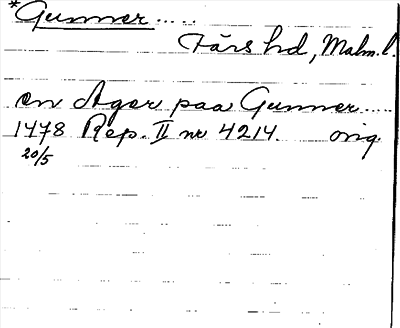 *Gunner.....
Färs hd, Malm. l.
en Ager paa Gunner.....
1478 Rep. II nr 4214. orig
20/5